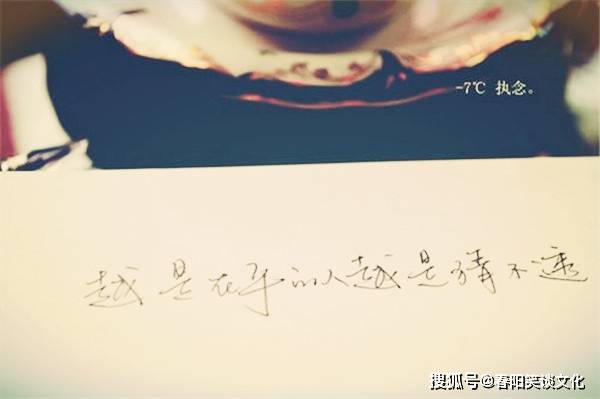 -7℃ 执念。
越是在乎的人越是猜不透
搜狐号@春阳笑谈文化